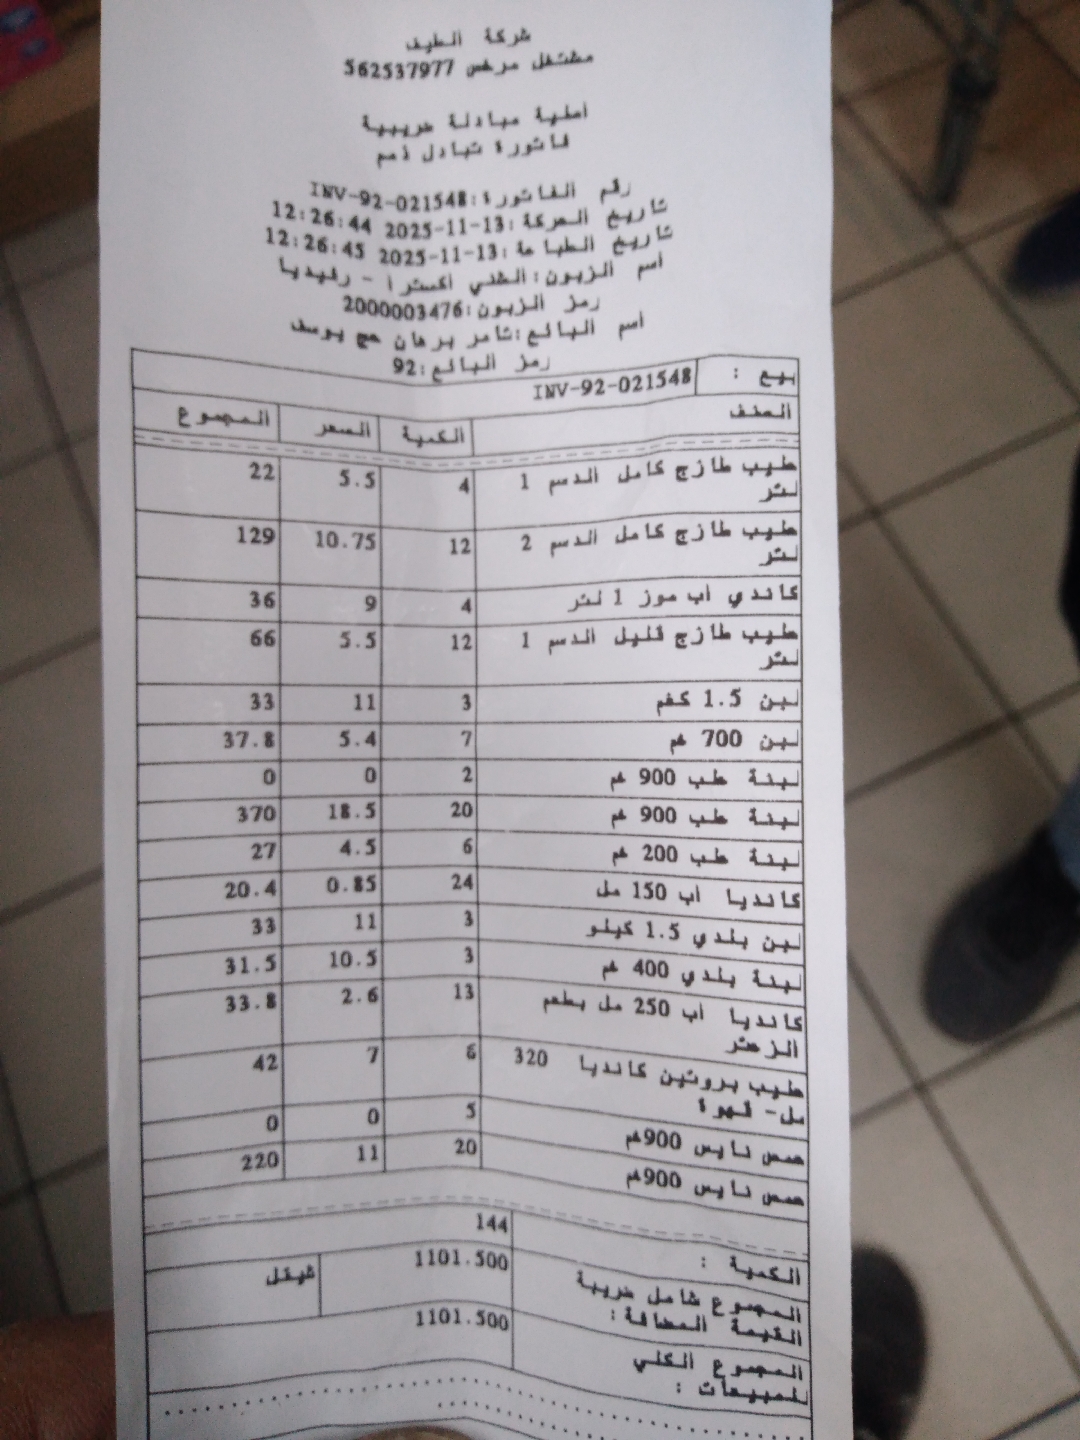 شركة الطيف
مشتغل مرخص 562537977
أصلية مبادلة ضريبية
فاتورة تبادل ذمم
رقم الفاتورة:INV-92-021548
تاريخ الحركة:2025-11-13 12:26:44
تاريخ الطباعة:2025-11-13 12:26:45
أسم الزبون:الظني اكسترا - رفيديا
رمز الزبون:2000003476
أسم البائع:ثامر برهان حج يوسف
رمز البائع:92
بيع : INV-92-021548
الصنف الكمية السعر المجموع
حليب طازج كامل الدسم 1 لتر 4 5.5 22
حليب طازج كامل الدسم 2 لتر 12 10.75 129
كاندي أب موز 1 لتر 4 9 36
حليب طازج قليل الدسم 1 لتر 12 5.5 66
لبن 1.5 كغم 3 11 33
لبن 700 غم 7 5.4 37.8
لبنة طب 900 غم 2 0 0
لبنة طب 900 غم 20 18.5 370
لبنة طب 200 غم 6 4.5 27
كانديا أب 150 مل 24 0.85 20.4
لبن بلدي 1.5 كيلو 3 11 33
لبنة بلدي 400 غم 3 10.5 31.5
كانديا أب 250 مل بطعم الزعتر 13 2.6 33.8
حليب بروتين كانديا 320 مل- قهوة 6 7 42
حمص نايس 900غم 5 0 0
حمص نايس 900غم 20 11 220
الكمية : 144
المجموع شامل ضريبة القيمة المضافة: 1101.500 شيقل
المجموع الكلي للمبيعات : 1101.500